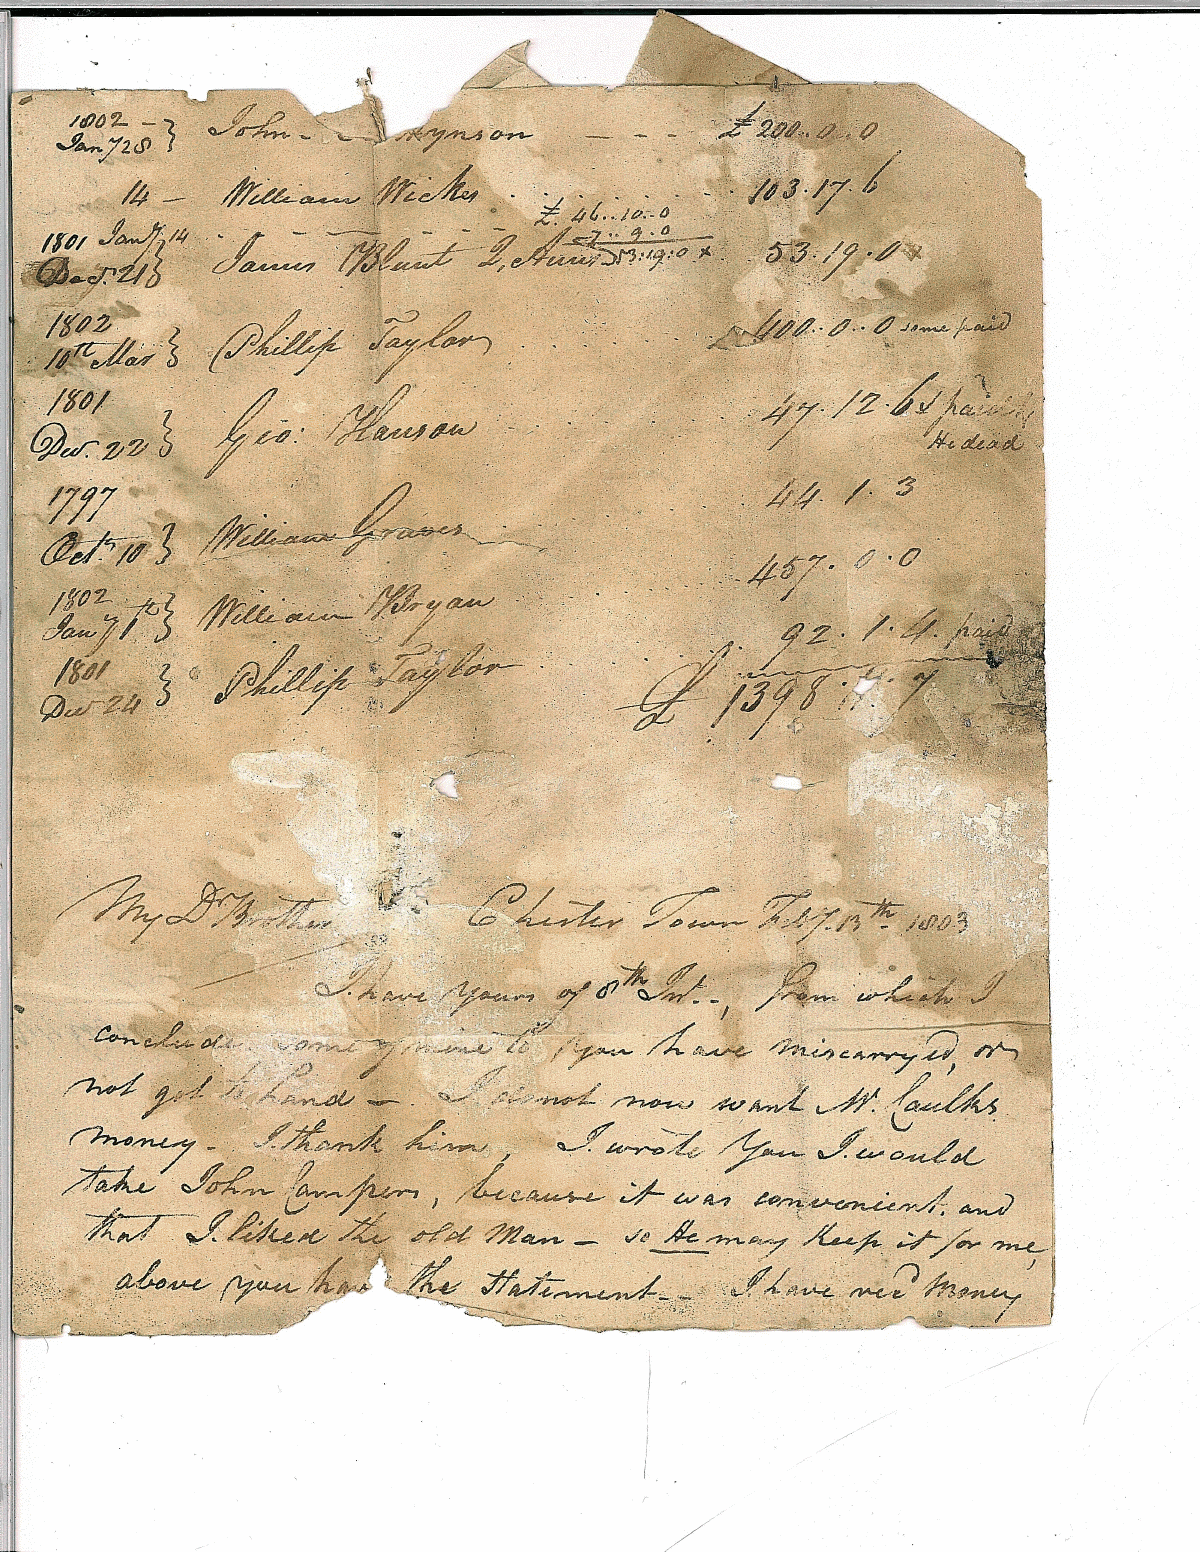 1802 -
Jany 28 } John - - - ynson - - - - £ 200..0..0
14 - William Wickes . . . . . . 103.17.6
£. 46..10..0
1801 Jany 14 - - - - - - 7..9.0
Decr. 21 } James Blunt 2, 53:19:0 x 53.19.0 x
1802
10th Mar } Phillip Taylor . . . . . . 400..0..0 some paid
1801
Der. 22 } Geo: Hanson . . . . . . 47.12.6 x paid
He dead
1797 44.1.3
Octr. 10 } William Graves . . . . . .
457.0.0
1802
Jany 1st } William Bryan . . . . . .
92.1.4. paid
1801
Der 24 } Phillip Taylor . . . . . .
£ 1398. .7
My Dr Brother Chester Town Feby. 13th 1803
I have yours of 8th Inst.., from which I
conclude some of mine to you have miscarryed, or
not got to hand -. I do not now want Mr. Caulks
money - I thank him, I wrote you I would
take John Campers, because it was convenient, and
that I liked the old Man - so He may keep it for me,
above you have the Statement -- I have recd money